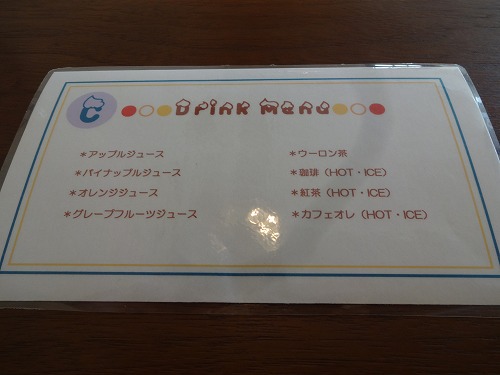 C Drink Menu
＊アップルジュース
＊パイナップルジュース
＊オレンジジュース
＊グレープフルーツジュース
＊ウーロン茶
＊珈琲（HOT・ICE）
＊紅茶（HOT・ICE）
＊カフェオレ（HOT・ICE）